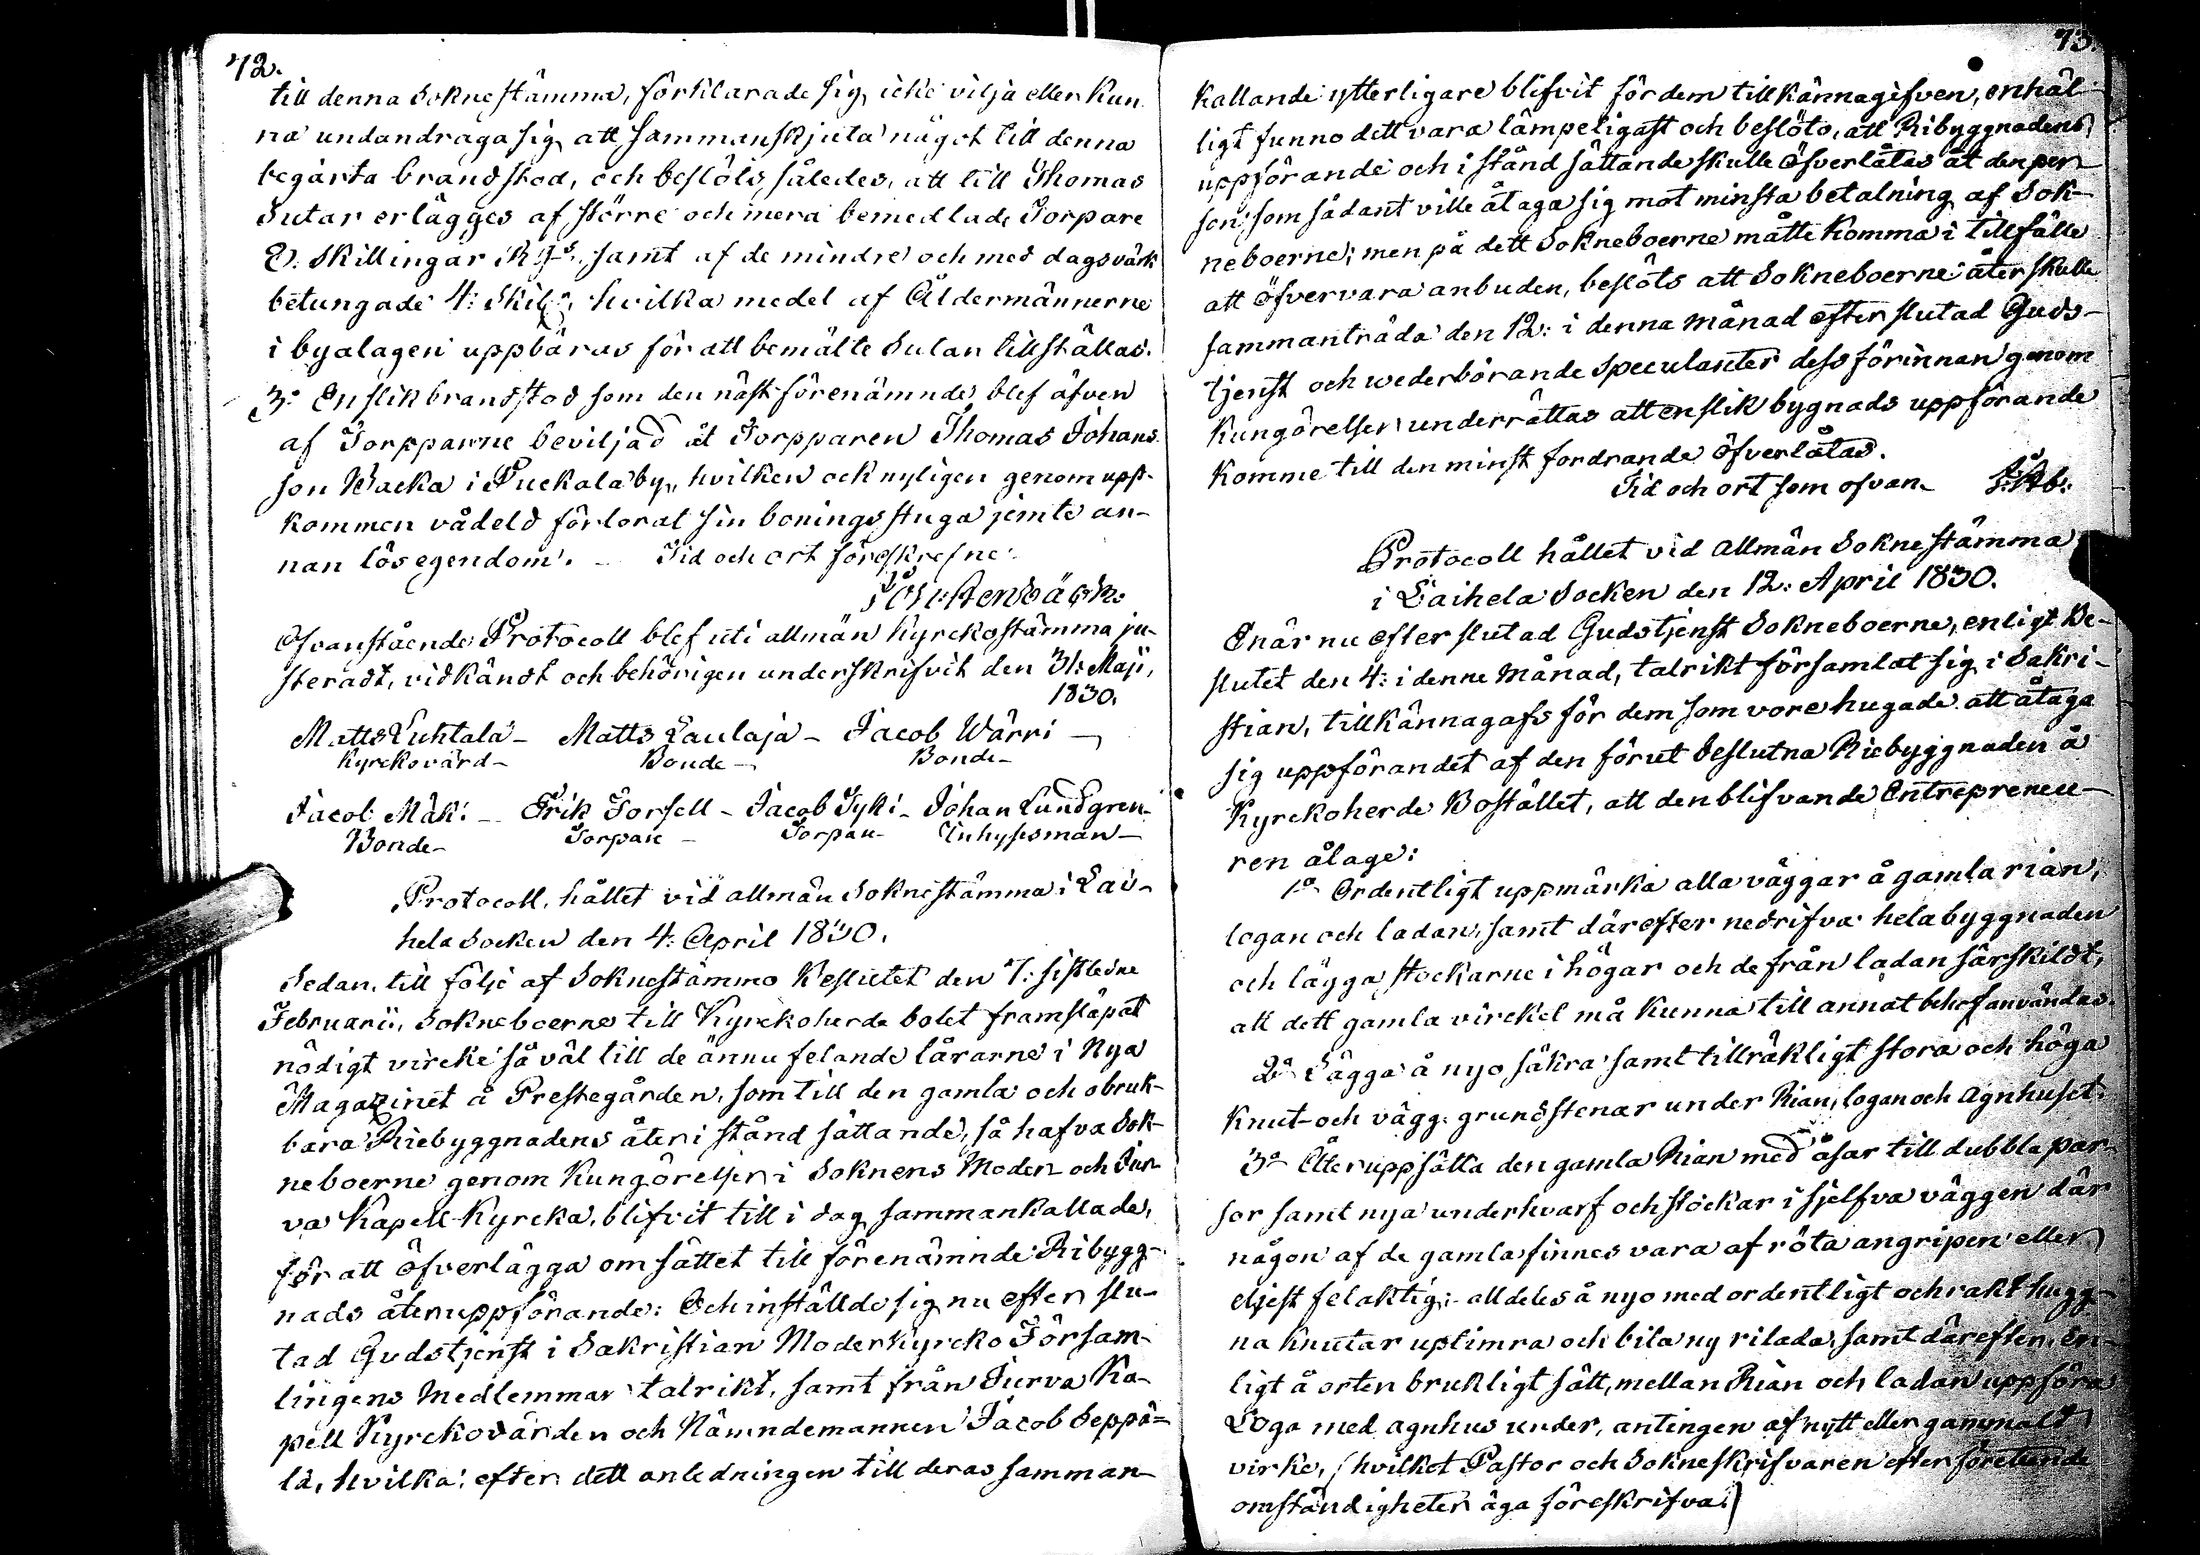 72.
till denna Soknestämma, förklarade sig, icke vilja eller kun-
na undandraga sig, att sammanskjuta något till denna
begärta brandstod, och beslöts således, att till Thomas
Sutar erlägges af större och mera bemedlade Torpare
8. Skillingar Rgs. samt af de mindre och med dagsvärk
betungade 4: Skilg, hvilka medel af Åldermännerne
i byalagen uppbäras för att bemälte Sutar tillställas.
3o En slik brandstod som den näst förenämnde, blef äfven
af Torpparne beviljad åt Torpparen Thomas Johans-
son Wacka i Puckala by, hvilken ock nyligen genom upp-
kommen vådeld förlorat sin boningsstuga jemte an-
nan lösegendom. _ Tid och ort föreskrefne.
Ofvanstående Protocoll blef uti allmän Kyrckostämma ju-
steradt, vidkändt och behörigen underskrifvit den 31: Maji,
1830.
Matts Luhtala _ Matts Laulaja _ Jacob Wärri _
Kyrckovärd _ Bonde _ Bonde _
Jacob Mäki _ Erik Torsell _ Jacob Tyki _ Johan Lundgren _
Bonde _ Torpare _ Torpare _ Inhysesman _
Protocoll, hållet vid allmän Soknestämma i Lai-
hela Socken den 4: April 1830.
Sedan, till följe af Soknestämmo Beslutet den 7: sistledne
Februarii, Sokneboerne till Kyrckoherde bolet framsläpat
nödigt vircke så väl till de ännu felande lårarne i Nya
Magazinet å Prestegården, som till den gamla och obruk-
bara Riebyggnadens åter i stånd sättande, så hafva Sok-
neboerne genom Kungörelser i Soknens Moder- och Jur-
va Kapell-Kyrcka, blifvit till i dag sammankallade,
för att öfverlägga om sättet till förenämnde Ribygg-
nads återuppförande: Och inställde sig nu efter slu-
tad Gudstjenst i Sakristian Moderkyrcko Försam-
lingens Medlemmar talrikt, samt från Jurva Ka-
pell Kyrckovärden och Nämndemannen Jacob Seppä-
lä, hvilka: efter dett anledningen till deras samman-
73.
kallande ytterligare blifvit för dem tillkännagifven, enhäl-
ligt funno dett vara lämpeligast och beslöto, att Ribyggnadens
uppförande och i stånd sättande skulle öfverlåtas åt den per-
son, som sådant ville åtaga sig mot minsta betalning af Sok-
neboerne; men på dett Sokneboerne måtte komma i tillfälle
att öfvervara anbuden, beslöts att Sokneboerne åter skulle
sammanträda den 12: i denna månad efter slutad Guds-
tjenst och wederbörande speculanter dess förinnan genom
Kungörelser underrättas att en slik bygnads uppförande
komme till den minst fordrande öfverlåtas.
Tid och ort som ofvan.
Protocoll hållet vid allmän Soknestämma
i Laihela Socken den 12: April 1830.
Enär nu efter slutad Gudstjenst Sokneboerne, enligt Be-
slutet den 4: i denne månad, talrikt församlat sig i Sakri-
stian, tillkännagafs för dem som vore hugade att åtaga
sig uppförandet af den förut beslutna Riebyggnaden å
Kyrckoherde Bostället, att den blifvande Entrepreneu-
ren ålage:
1o Ordentligt uppmärka alla väggar å gamla rian,
logan och ladan, samt därefter nedrifva hela byggnaden
och lägga stockarne i högar och de från ladan särskildt,
att dett gamla virckel må kunna till annat behof användas.
2o Lägga å nyo säkra samt tillräkligt stora och höga
knut- och vägg-grundstenar under Rian, logan och agnhuset.
3o Återuppsätta den gamla Rian med åsar till dubbla par-
sor samt nya underhvarf och stockar i sjelfva väggen där
någon af de gamla finnes vara af röta angripen eller
eljest felaktig; alldeles å nyo med ordentligt och rakt hugg-
na knutar uptimra och bila ny rilada, samt därefter, en-
ligt å orten brukligt sätt, mellan Rian och ladan uppföra
Loga med agnhus under, antingen af nytt eller gammalt
virke, (hvilket Pastor och Sokneskrifvaren efter företeende
omständigheter äga föreskrifva.)